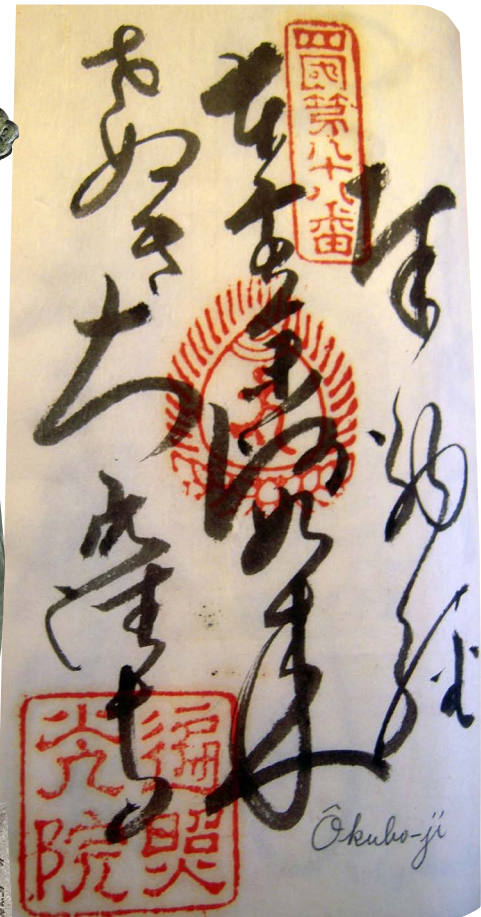 四國第八十八番
奉納経
本尊薬師如来
さぬき大窪寺
遍照
光院
Ôkubo-ji